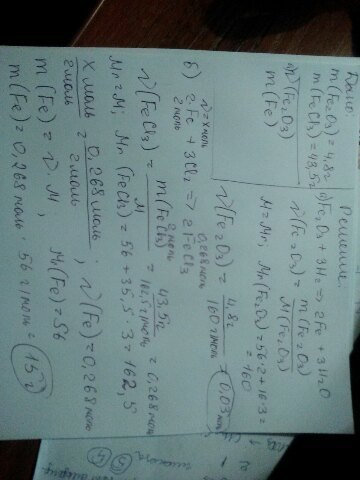 Дано:
m(Fe₂O₃) = 4,8г
m(FeCl₃) = 43,5г
ν(Fe₂O₃)
m(Fe)
Решение:
а) Fe₂O₃ + 3H₂ => 2Fe + 3H₂O
ν(Fe₂O₃) = m(Fe₂O₃) / M(Fe₂O₃)
M = Mr; Mr(Fe₂O₃) = 56·2 + 16·3 = 160
ν(Fe₂O₃) = 4,8г / 160 г/моль = 0,03 моль
ν = x моль 0,268 моль
б) 2Fe + 3Cl₂ => 2FeCl₃
2 моль 2 моль
ν(FeCl₃) = m(FeCl₃) / M = 43,5г / 162,5 г/моль = 0,268 моль
M = Mr; Mr(FeCl₃) = 56 + 35,5·3 = 162,5
x моль / 2 моль = 0,268 моль / 2 моль; ν(Fe) = 0,268 моль
m(Fe) = ν · M, Mr(Fe) = 56
m(Fe) = 0,268 моль · 56 г/моль = 15г